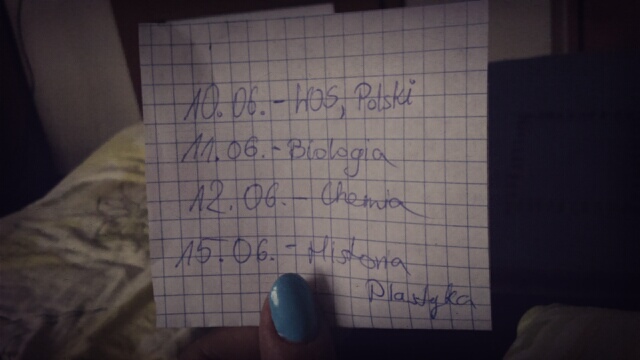 10.06. - WOS, Polski
11.06. - Biologia
12.06. - Chemia
15.06. - Historia
Plastyka